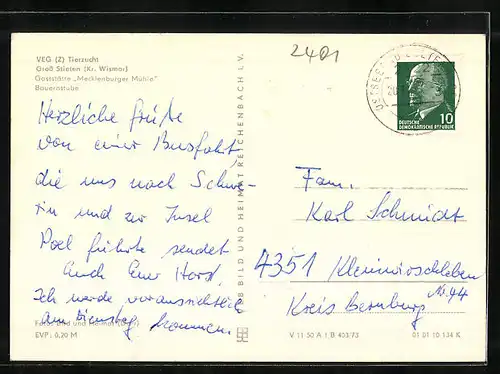 2401
VEG (Z) Tierzucht
Groß Stieten (Kr. Wismar)
Gaststätte „Mecklenburger Mühle"
Bauernstube
Herzliche Grüße
von einer Busfahrt,
die uns nach Schwe-
rin und zur Insel
Poel führte sendet
Euch Euer Horst.
Ich werde voraussichtlich
am Dienstag kommen.
EVP: 0,20 M
BILD UND HEIMAT REICHENBACH I. V.
DEUTSCHE
DEMOKRATISCHE REPUBLIK
10
Fam.
Karl Schmidt
4351 Kleinwirschleben
Nr. 44
Kreis Bernburg
V 11 50 A 1 B 403/73
01 01 10 134 K